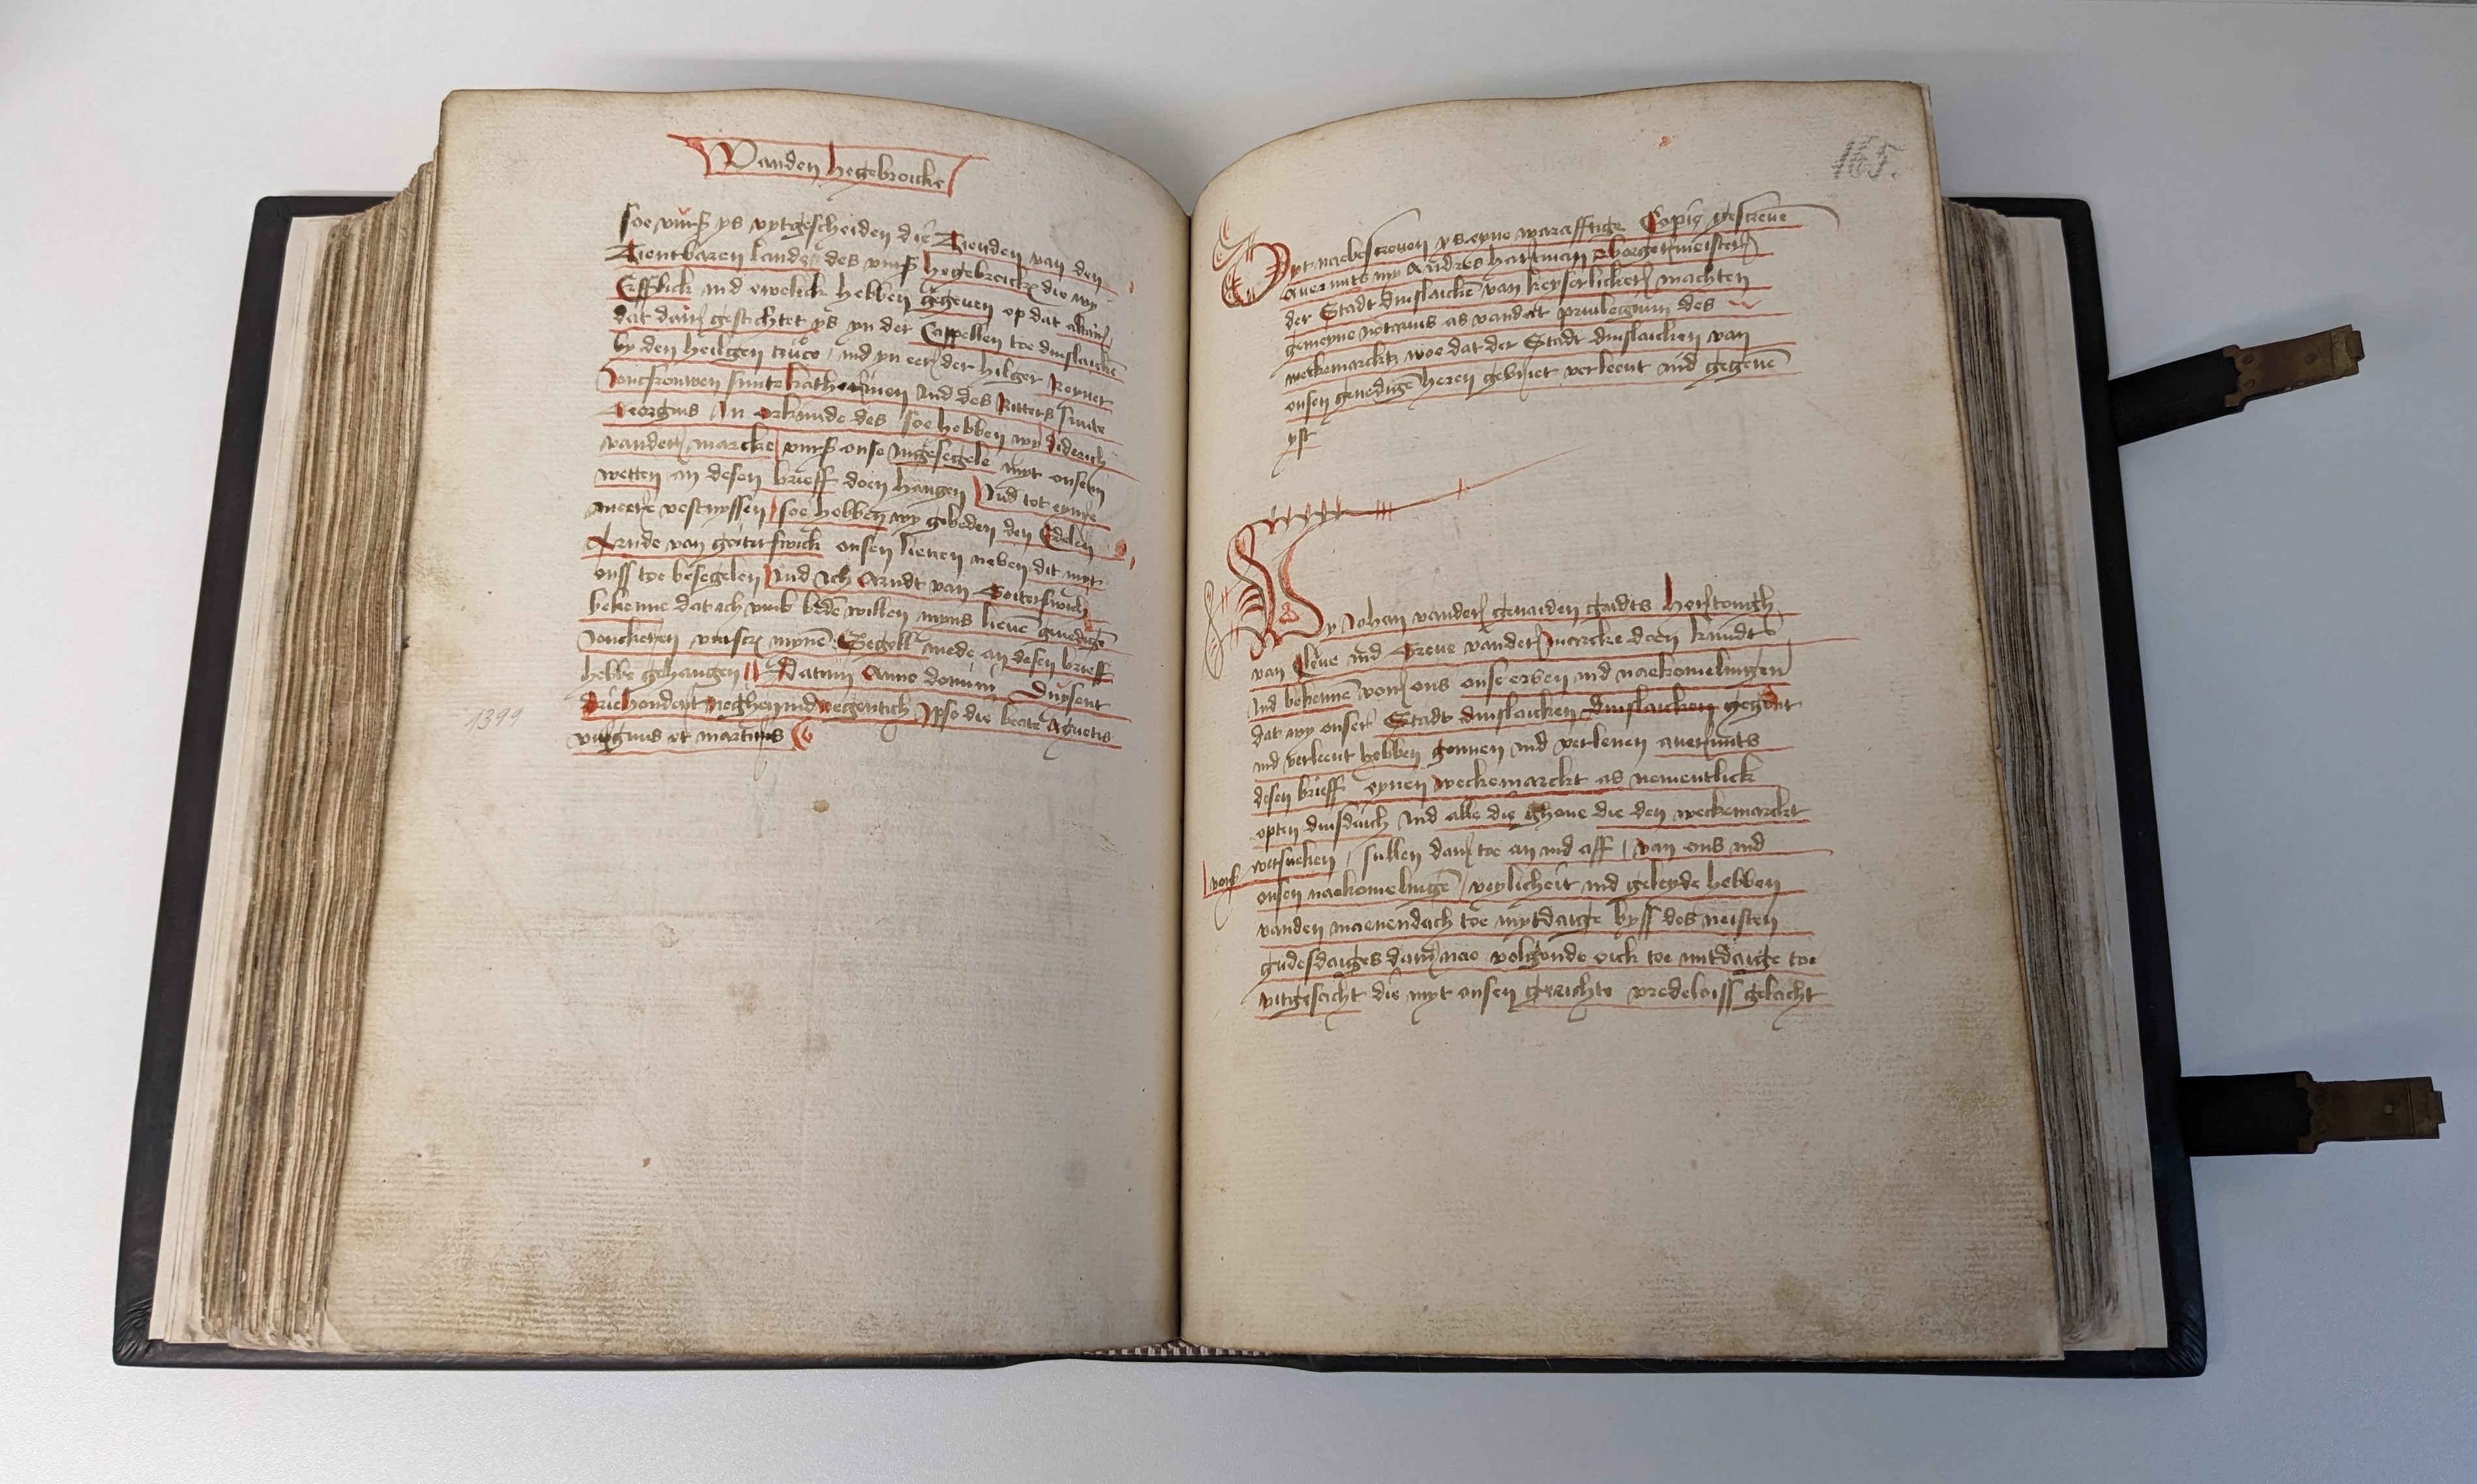 Vanden hegebroicke
soe vurß ys vytgescheiden die Tienden van den
Tientbaren lande des vurß hegebroicks die wy
Erfflick ind ewelick hebben gegeuen op dat altair
dat dair gestichtet ys yn der Cappellen toe dinslaicken
by den heilgen cruce ind yn eer der hilger Reyner
Joncfrouwen sunte katherinen Ind des Ritters sunte
Georgius In orkunde des soe hebben wy diderich
vander marcke vurß onse Ingesegele myt onsem
wetten an desen brieff doen hangen Ind tot eynre
meere vestnyssen soe hebben wy gebeden den Edelen
Arnde van goiterswick onsen lieuen neben dit myt
onss toe besegelen Ind Ich Arndt van Goiterswick
bekenne dat ich vmb bede willen myns lieue gnedige
Jonckeren vurscr myne Segell mede an desen brieff
hebbe gehangen Datum Anno domini Duysent
driehondert neghen ind negentich Ipso die beate Agnetis
virginis et martiris
1399
165.
Dyt naebescreuen ys eyne warafftige Copie gescreue
auermits my Andres hartman borgermeister
der Stadt dinslaicke van keyserlicker machten
gemeyne notarius as van dat priuilegium des
weckemarckts woe dat der Stadt dinslaicken van
onsen gnedige heren gevriet verleent ind gegeue
yst
Wy Johan vander genaiden gaidts hertough
van Cleue ind Greue vander marcke doen kundt
Ind bekenne vour ons onse eruen ind naekomelingen
dat wy onser Stadt dinslaicken dinslaicken gegont
ind verleent hebben gonnen ind verlenen auermits
desen brieff eynen weckemarckt as nementlick
opten dinsdaich Ind alle die ghene die den weckemarckt
vurß versueken sullen dair toe an ind aff van ons ind
onsen naekomelinge veylicheit ind geleyde hebben
vanden maenendach toe mytdaige byss des neisten
gudesdaiges dair nae volgende oick toe mitdaige toe
vitgesacht die myt onsen gerichte vredeloiss gelacht